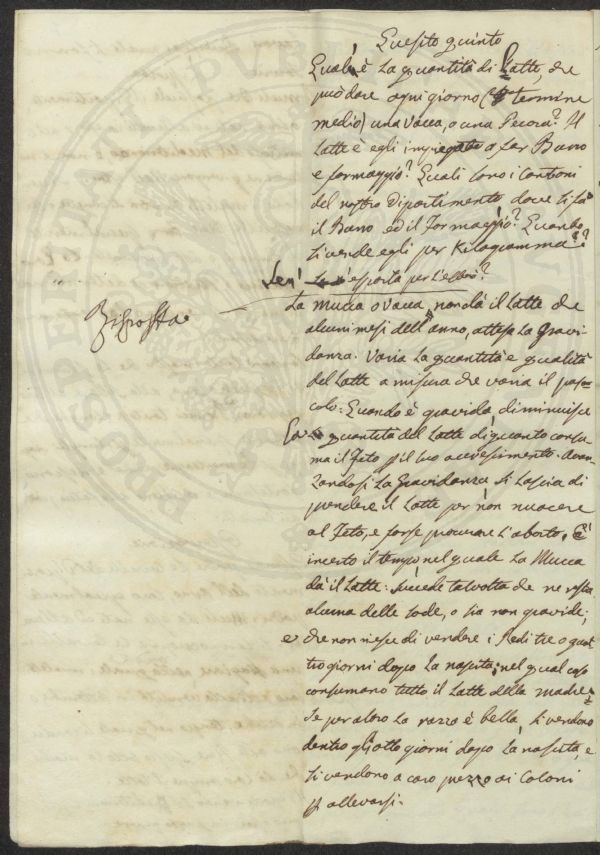 Quesito quinto
Qual'è la quantità di Latte, che
può dare ogni giorno (termine
medio) una Vacca, o una Pecora? Il
Latte è egli impiegato a far Burro
e formaggio? Quali sono i Cantoni
del nostro Dipartimento dove si fà
il Burro ed il Formaggio? Quando
si vende egli per Kilogramma?
esporta per l'estero?
Risposta
La Mucca o Vacca non dà il Latte che
alcuni mesi dell'anno, attesa la gravi-
danza. Varia la quantità e qualità
del Latte a misura che varia il pas-
colo: Quando è gravida, diminuisce
la quantità del Latte di quanto consu-
ma il Feto p il suo accrescimento. Avan-
zandosi la Gravidanza si lascia di
prendere il Latte per non nuocere
al Feto, e forse procurare l'aborto. È
incerto il tempo nel quale la Mucca
dà il Latte: succede talvolta che ne resta
alcuna delle sode, o sia non gravide;
e che non riesce di vendere i Redi tre o quat-
tro giorni dopo la nascita; nel qual caso
consumano tutto il Latte della madre;
se per altro la razza è bella, si vendono
dentro gli otto giorni dopo la nascita, e
si vendono a caro prezzo ai Coloni
p allevarsi.